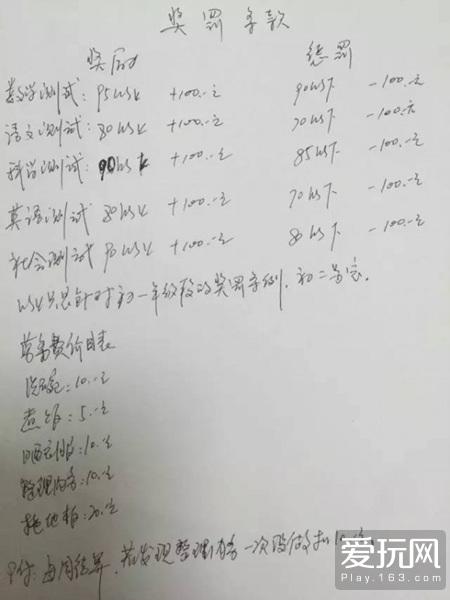 奖罚条款
奖励 惩罚
数学测试: 95以上 +100.-元 90以下 -100.元
语文测试: 80以上 +100.-元 70以下 -100.元
科学测试: 90以上 +100.-元 85以下 -100.-元
英语测试 80以上 +100.-元 70以下 -100.-元
社会测试 90以上 +100.-元 80以下 -100.-元
以上只是针对初一年级段的奖罚条例, 初二另定.
劳务费价目表
洗碗: 10.-元
煮饭: 5.-元
晒衣服: 10.-元
整理内务: 10.-元
拖地板: 20.元
附: 每周结算, 若发现整理内务一次没做扣10.元
爱玩网
Play.163.com